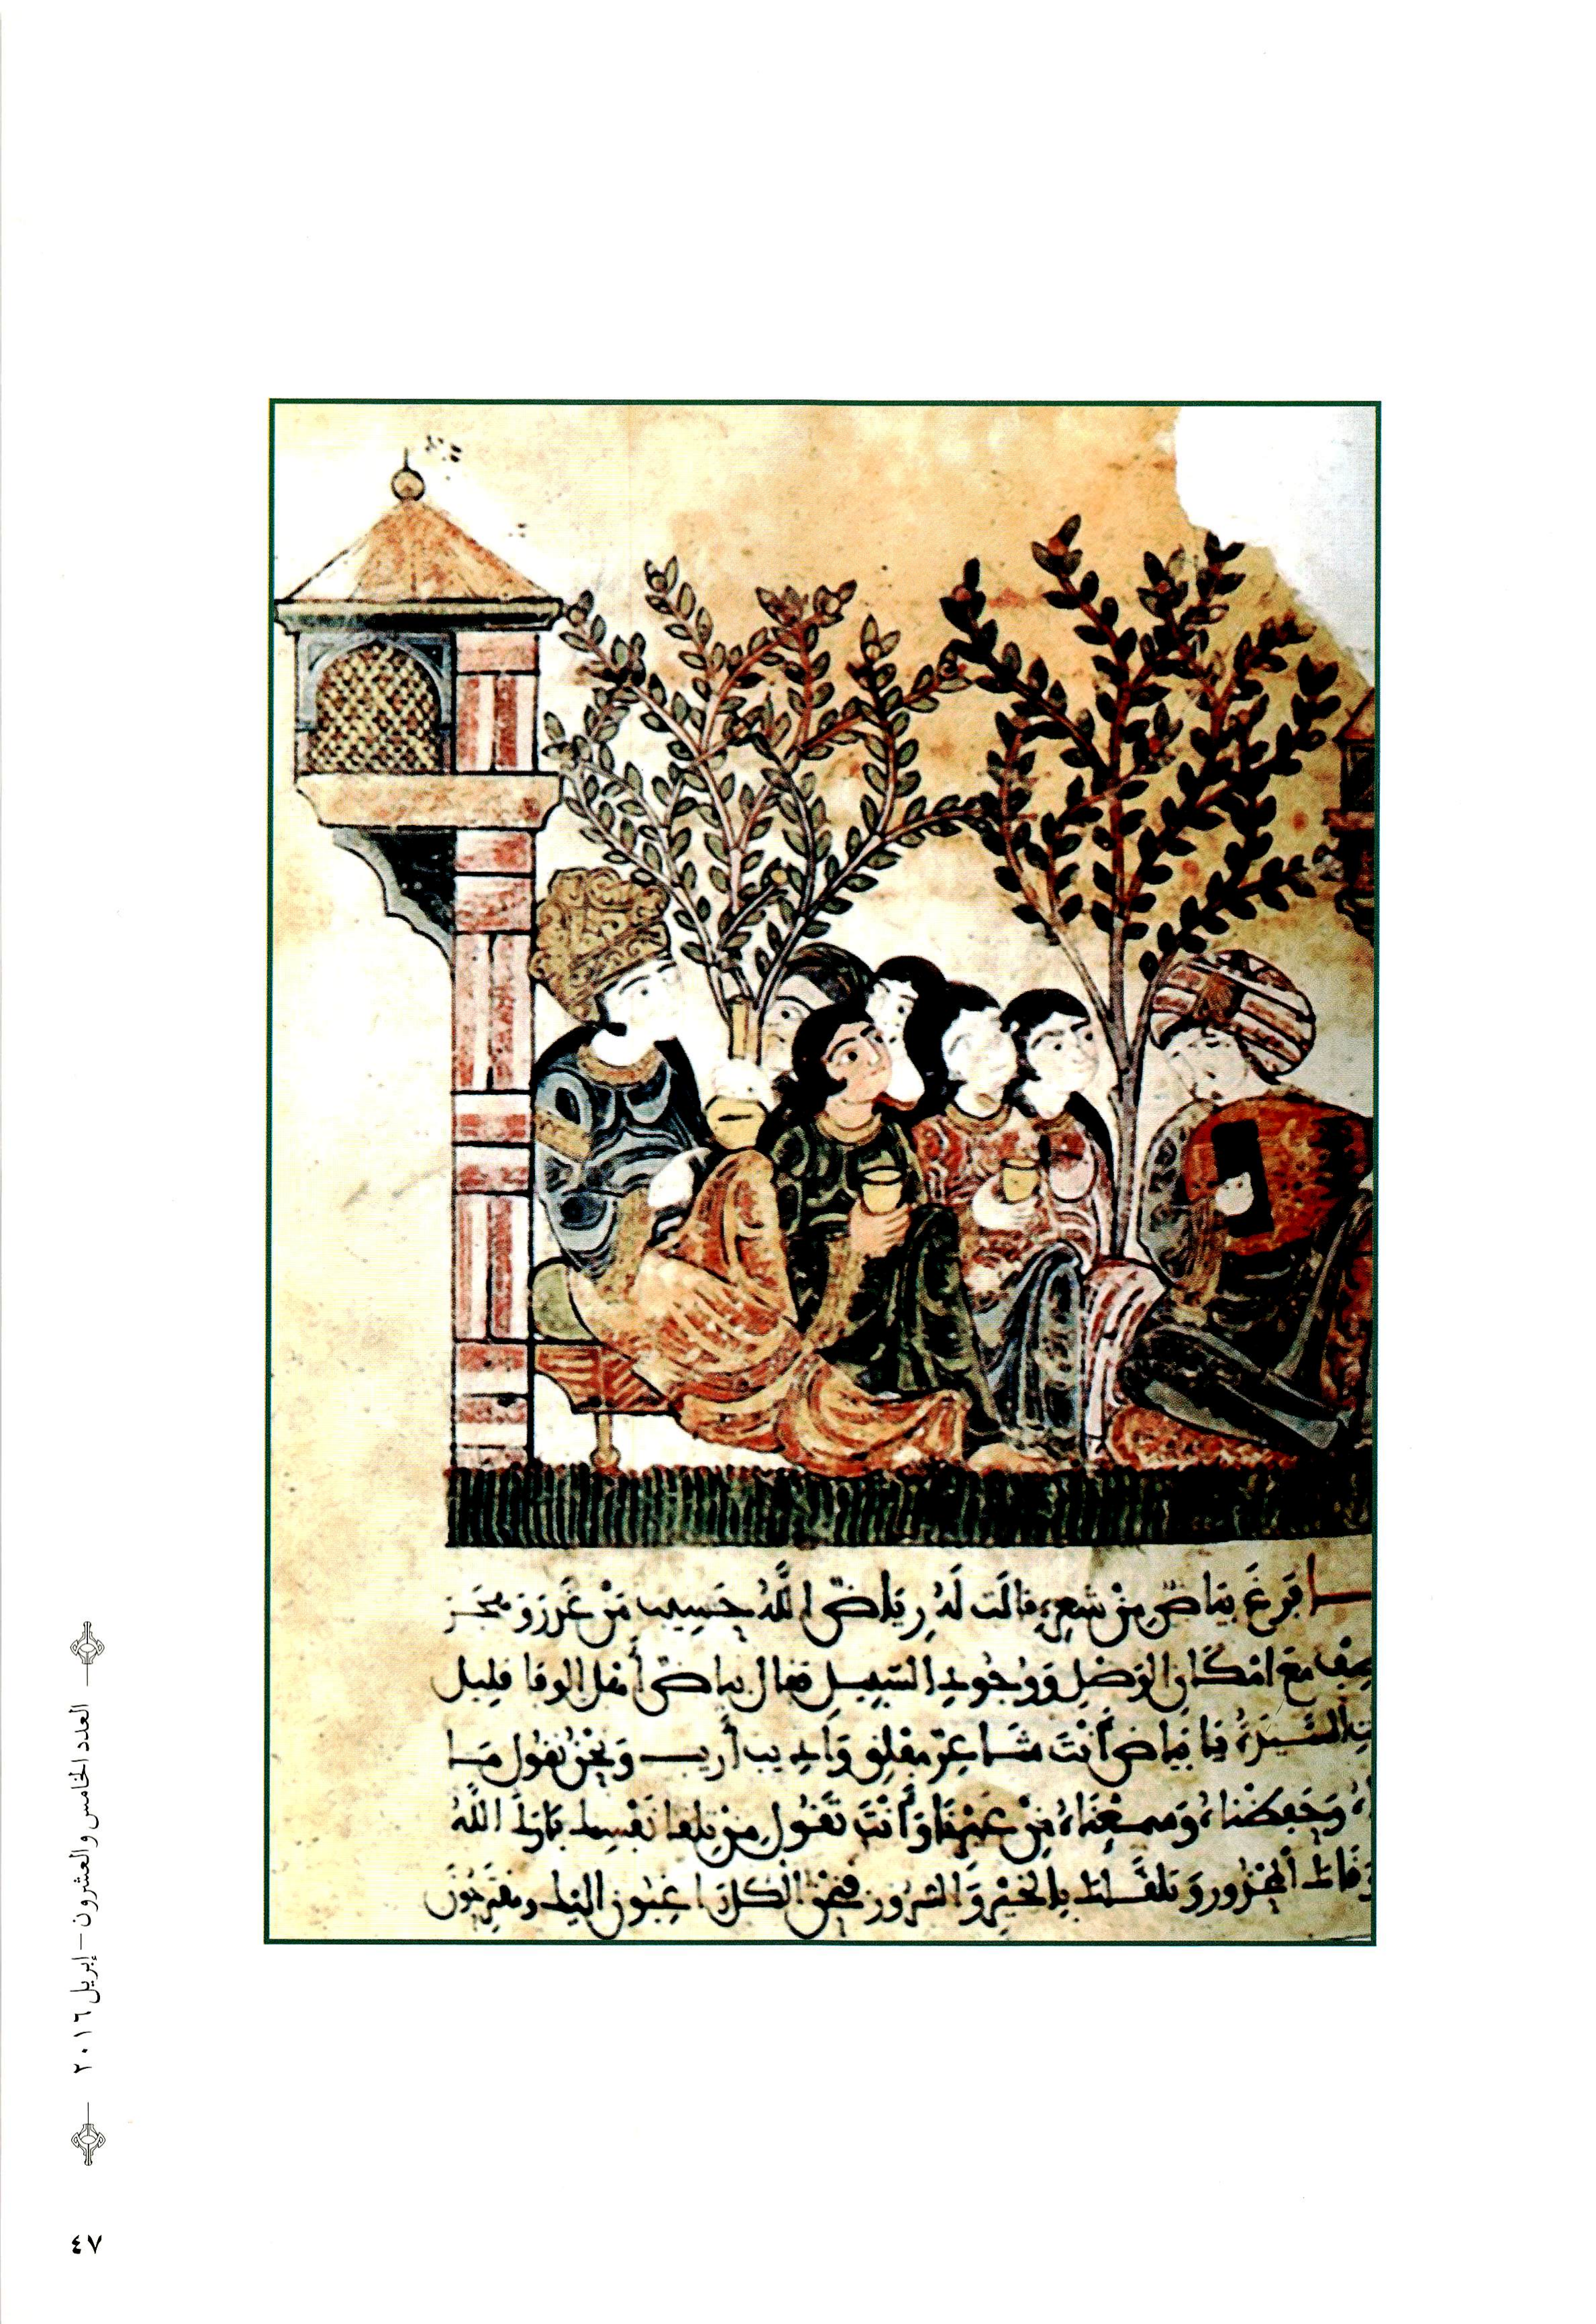 فرغ بياض من شعره قالت له رياض الله حسيب من غرر و
مع امكان الوصل ووجود السبيل فقال بياض أهل الوفا قليل
يا بياض أنت شاعر مفلق واديب أريب ونحن نقول
وحفظناه وسمعناه من غيرنا وأنت تقول من تلقا نفسك فاوك الله
وقاك الخرور وتلقاك بالخير والسرور فنحن الكل راغبون اليك ومقترحون
العدد الخامس والعشرون – إبريل ٢٠١٦
٤٧